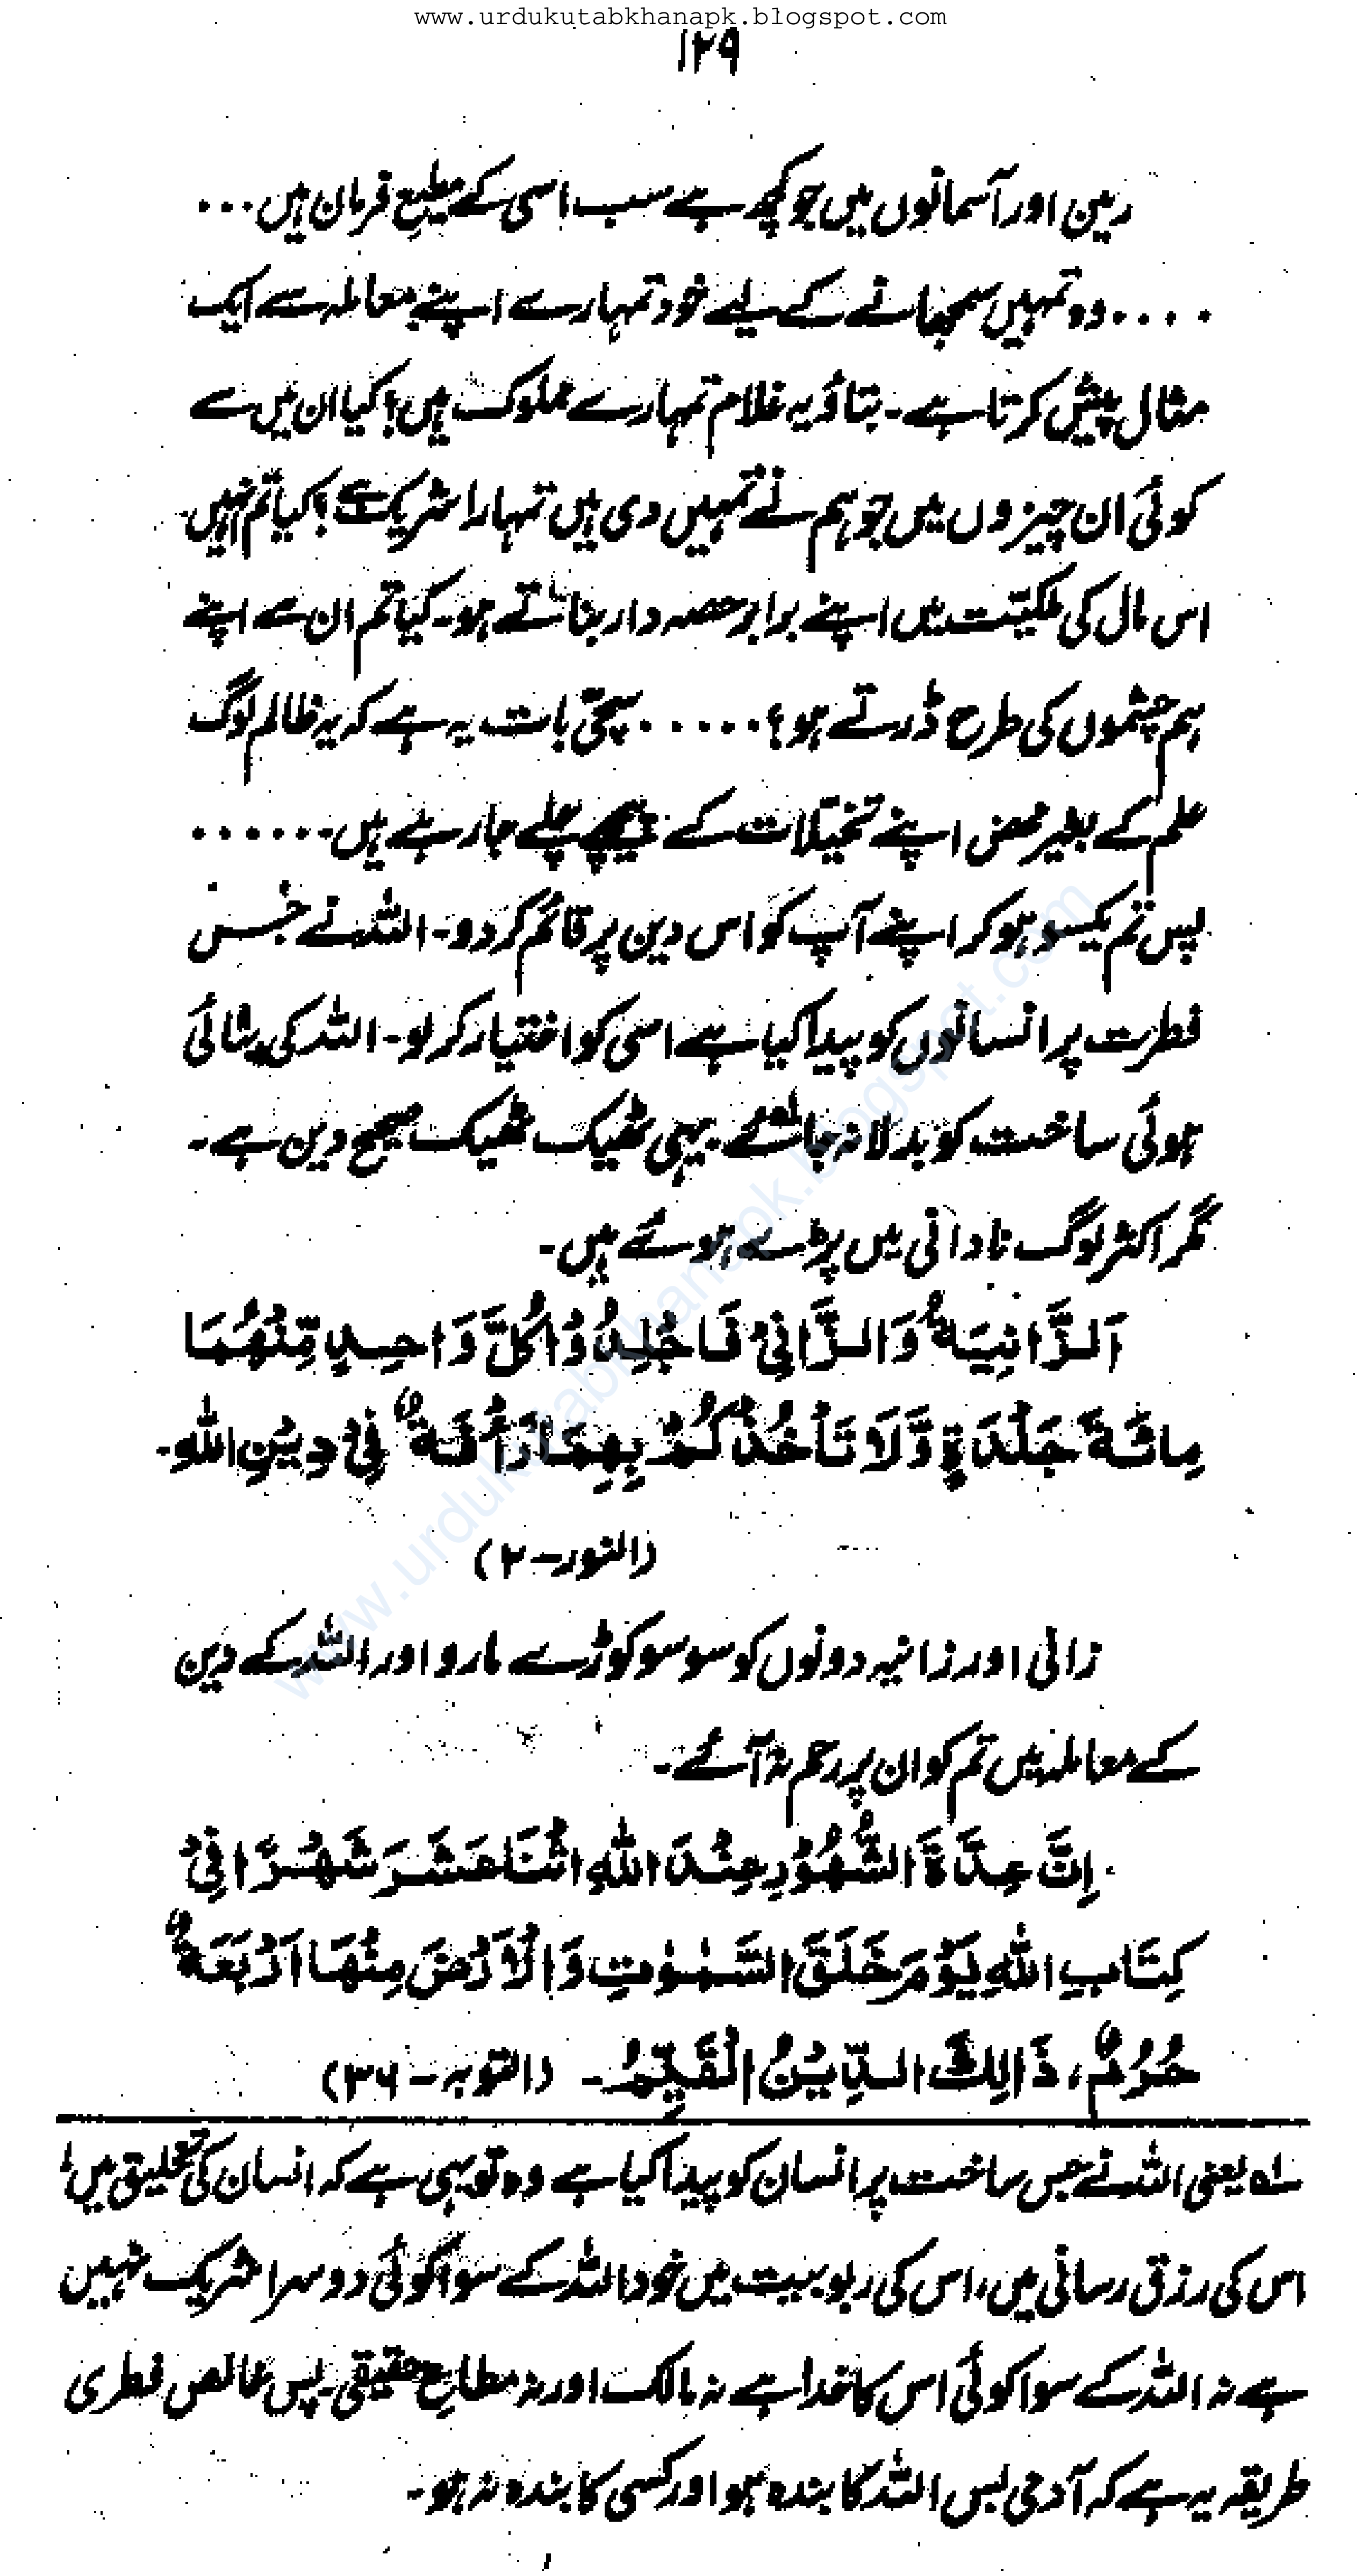 www.urdukutabkhanapk.blogspot.com
۱۲۹
زمین اور آسمانوں میں جو کچھ ہے سب اسی کے مطیع فرمان ہیں ...
.... وہ تمہیں سمجھانے کے لیے خود تمہارے اپنے معاملہ سے ایک
مثال پیش کرتا ہے۔ بتاؤ یہ غلام تمہارے مملوک ہیں؟ کیا ان میں سے
کوئی ان چیزوں میں جو ہم نے تمہیں دی ہیں تمہارا شریک ہے؟ کیا تم انہیں
اس مال کی ملکیّت میں اپنے برابر حصہ دار بناتے ہو۔ کیا تم ان سے اپنے
ہم چشموں کی طرح ڈرتے ہو؟ ..... سچی بات یہ ہے کہ یہ ظالم لوگ
علم کے بغیر محض اپنے تخیّلات کے پیچھے چلے جا رہے ہیں۔ ......
پس تم یکسو ہو کر اپنے آپ کو اس دین پر قائم کر دو۔ اللہ نے جس
فطرت پر انسانوں کو پیدا کیا ہے اسی کو اختیار کر لو۔ اللہ کی بنائی
ہوئی ساخت کو بدلا نہ جائے۔ یہی ٹھیک ٹھیک صحیح دین ہے۔
مگر اکثر لوگ نادانی میں پڑے ہوئے ہیں۔
اَلزَّانِيَةُ وَالزَّانِيْ فَاجْلِدُوْا كُلَّ وَاحِدٍ مِّنْهُمَا
مِائَةَ جَلْدَةٍ وَّلَا تَأْخُذْكُمْ بِهِمَا رَأْفَةٌ فِيْ دِيْنِ اللهِ۔
(النور۔۲)
زانی اور زانیہ دونوں کو سو سو کوڑے مارو اور اللہ کے دین
کے معاملہ میں تم کو ان پر رحم نہ آئے۔
اِنَّ عِدَّةَ الشُّهُوْرِ عِنْدَ اللهِ اثْنَا عَشَرَ شَهْرًا فِيْ
كِتَابِ اللهِ يَوْمَ خَلَقَ السَّمٰوٰتِ وَالْاَرْضَ مِنْهَا اَرْبَعَةٌ
حُرُمٌ، ذَالِكَ الدِّيْنُ الْقَيِّمُ۔ (التوبہ۔۳۶)
لہ یعنی اللہ نے جس ساخت پر انسان کو پیدا کیا ہے وہ تو یہی ہے کہ انسان کی تخلیق میں،
اس کی رزق رسانی میں، اس کی ربوبیت میں خود اللہ کے سوا کوئی دوسرا شریک نہیں
ہے نہ اللہ کے سوا کوئی اس کا خدا ہے نہ مالک اور نہ مطاعِ حقیقی۔ پس خالص فطری
طریقہ یہ ہے کہ آدمی بس اللہ کا بندہ ہو اور کسی کا بندہ نہ ہو۔
www.urdukutabkhanapk.blogspot.com